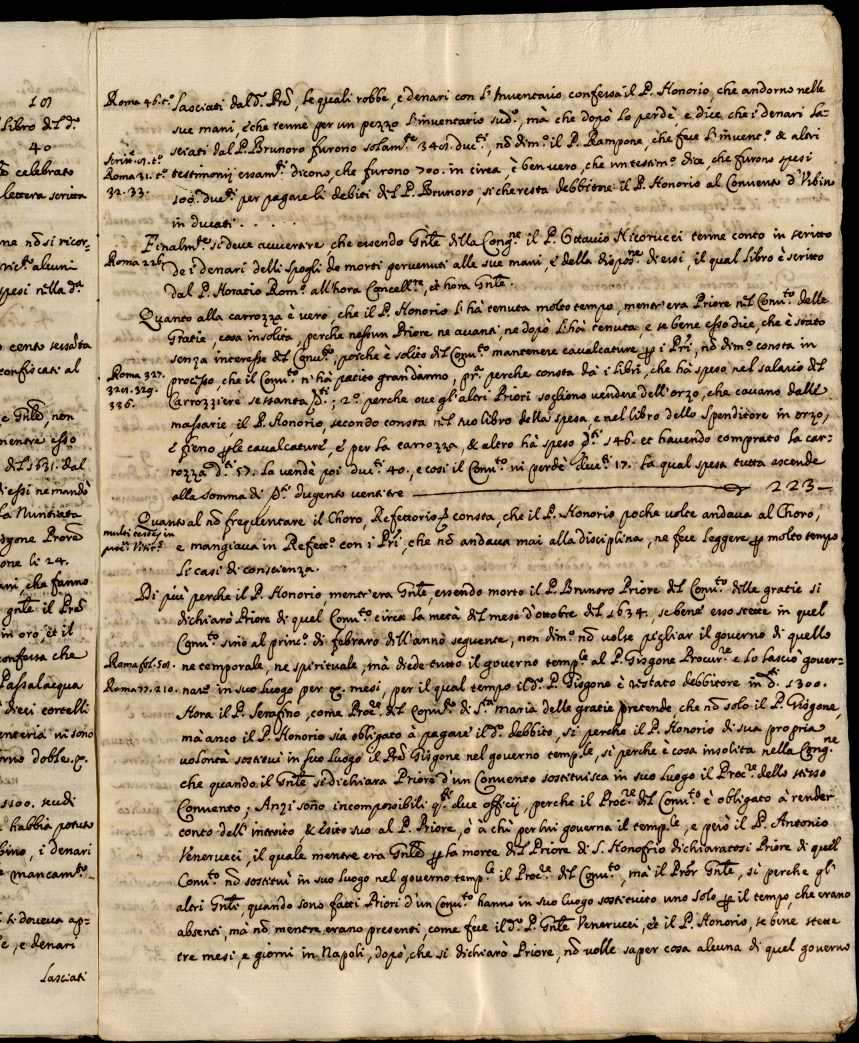 101
libro del d.º
40
celebrato
lettera scritta
ne nõ si ricor-
alcuni
spesi nella d.ª
cento sessãta
confiscati al
e Gñle, non
mentre esso
del 1631. dal
d'essi ne mandò
la Nuntiata
sgone Prove
one li 24.
ani, che fanno
gñle il Prẽ
in oro, et il
confessa che
Passalacqua
dieci cortelli
enteria vi sono
anno doble.
1500. scudi
habbia potuto
bino, i denari
mancam.to
si doveva ap-
e, e denari
lasciati
Roma 46. t.º
lasciati dal d. Prẽ, le quali robbe, e denari con l'Inventario confessa il P. Honorio, che andorno nelle
sue mani, e che tenne per un pezzo l'inventario sud.º, mà che dopò lo perdè e dice, che i denari la=
sciati dal P. Brunoro furono solam.te 3401. duc.ti, nõ dim.º il P. Rampone, che fece l'invent.º & altri
Roma 31. t.º
testimonij essam.ti dicono, che furono 700. in circa, è ben vero, che un testim.º dice, che furono spesi
32. 33.
100. duc.ti per pagare li debiti del P. Brunoro, si che resta debbitore il P. Honorio al Convento d'Vrbino
in ducati . . . . .
Finalm.te si deve avvertire che essendo Gñle della Cong.ne il P. Ottavio Nicorucci tenne conto in scritto
Roma 226.
de i denari delli spogli de morti pervenuti alle sue mani, e della dispos.ne di essi, il qual libro è scritto
dal P. Horatio Rom.º all'hora Cancell.re, et hora Gñle.
Quanto alla carrozza è vero, che il P. Honorio l'hà tenuta molto tempo, mentr'era Priore nel Conv.to delle
Gratie, cosa insolita, perche nessun Priore ne avanti, ne dopò l'hà tenuta, e se bene esso dice, che è stato
senza interesse del Conv.to, poiche è solito del Conv.to mantenere cavalcature ꝑ i Pri, nõ dim.º consta in
Roma 327.
processo, che il Conv.to n'hà patito gran danno, pr.º perche consta da i libri, che hà speso nel salario del
320t. 329.
Carrozziere sessanta d.ti; 2º perche ove gl'altri Priori sogliono vendere dell'orzo, che cavano dalle
336.
massarie, il P. Honorio, secondo consta nel suo libro della spesa, e nel libro dello Spenditore in orzo,
e fieno ꝑ le cavalcature, e per la carrozza, & altro hà speso d.ti 146. et havendo comprato la car-
rozza d.ti 57. la vendè poi duc.ti 40., e così il Conv.to vi perdè duc.ti 17. la qual spesa tutta ascende
alla somma di d.ti dugento ventitre — 223—
Quanto al nõ frequentare il Choro, Refettorio consta, che il P. Honorio poche volte andava al Choro,
multi testes in
e mangiava in Refett.º con i Pri, che nõ andava mai alla disciplina, ne fece leggere ꝑ molto tempo
li casi di conscienza.
Di più perche il P. Honorio, mentr'era Gñle, essendo morto il P. Brunoro Priore del Conv.to delle gratie si
dichiarò Priore di quel Conv.to circa la metà del mese d'ottobre del 1634., se bene esso stette in quel
Conv.to sino al princ.º di febraro dell'anno seguente, non dim.º nõ volse pigliar il governo di quello
Roma fol. 501.
ne temporale, ne spirituale, mà diede tutto il governo temp.le al P. Gisgone Procur.re e lo lasciò gover=
Roma 77. 210.
nare in suo luogo per mesi, per il qual tempo il d.º P. Gisgone è restato debbitore in d.ti 1300.
Hora il P. Serafino, come Proc.re del Conv.to di S.ta maria delle gratie pretende che nõ solo il P. Gisgone,
mà anco il P. Honorio sia obligato à pagare il d.º debbito, sì perche il P. Honorio di sua propria
volontà sostituì in suo luogo il Prẽ Gisgone nel governo temp.le, sì perche è cosa insolita nella Cong.ne
che quando il Gñle si dichiara Priore d'un Convento sostituisca in suo luogo il Proc.re dello stesso
Convento; Anzi sono incompossibili q.ti due officij, perche il Proc.re del Conv.to è obligato à render
conto dell'introito & Esito suo al P. Priore, ò à chi per lui governa il temp.le, e però il P. Antonio
Venerucci, il quale mentre era Gñle ꝑ la morte del Priore di S. Honofrio dichiaratosi Priore di quel
Conv.to nõ sostituì in suo luogo nel governo temp.le il Proc.re del Conv.to, mà il Prõr Gñle, sì perche gl'
altri Gñli, quando sono fatti Priori d'un Conv.to hanno in suo luogo sostituito uno solo ꝑ il tempo, che erano
absenti, mà nõ mentre erano presenti, come fece il d.º P. Gñle Venerucci, et il P. Honorio, se bene stette
tre mesi, e giorni in Napoli, dopò, che si dichiarò Priore, nõ volle saper cosa alcuna di quel governo